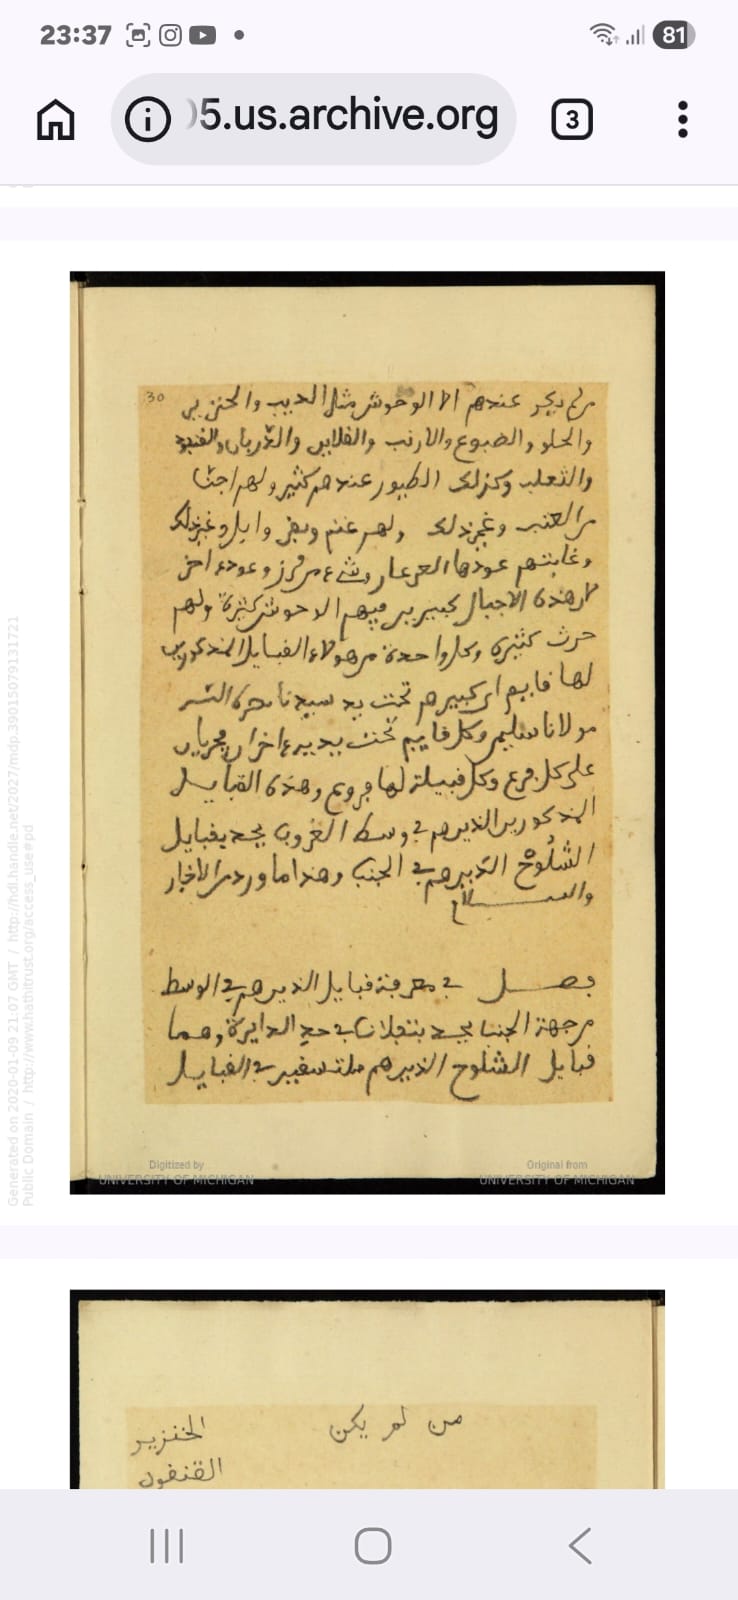 23:37
81
05.us.archive.org
3
30
من لم يكن عندهم الا الوحوش مثل الديب والخنزير
والحلوـ والضبوع والارنب والقلاين والذربان والقنفود
والثعلب وكذلك الطيور عندهم كثير ولهم اجنا
من العنب وغير ذلك ولهم غنم وبقر وابل وغير ذلك
وغابتهم عودها العرعار وشيء من وعود اخر
لان هذه الاجبال كبيرين فيهم الوحوش كثيرة ولهم
حرث كثيرة وكل واحدة من هولاء القبايل المذكورين
لها قايم اي كبيرهم تحت يد سيدنا نصره الله
مولانا سليم وكل قايم تحت يديه اخران يجريان
على كل فرع وكل قبيلة لها فروع وهذه القبايل
المذكورين الذين هم في وسط الغروب يحد بقبايل
الشلوح الذين هم في الجنب وهذا ما ورد من الاخبار
والسلام
فصل في معرفة قبايل الذين هم في الوسط
من جهة الجنب يحد بنتيلان في حد الدايرة وهما
قبايل الشلوح الذين هم ملتسقين في القبايل
Digitized by
UNIVERSITY OF MICHIGAN
Original from
UNIVERSITY OF MICHIGAN
Generated on 2020-01-09 21:07 GMT / http://hdl.handle.net/2027/mdp.39015079131721
Public Domain / http://www.hathitrust.org/access_use#pd
من لم يكن
الخنزير
القنفود